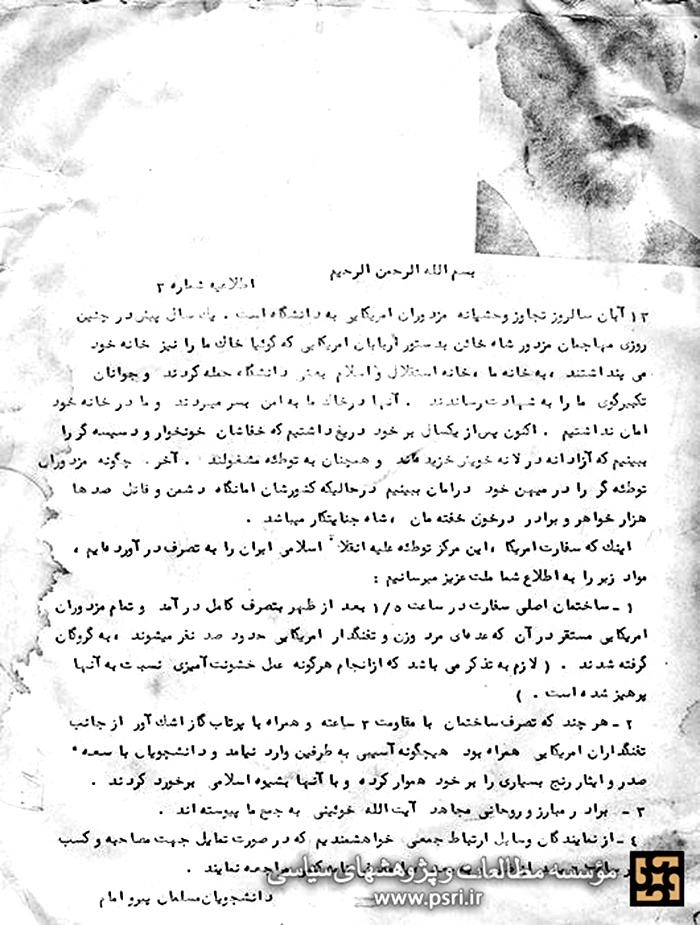 بسم الله الرحمن الرحیم
اطلاعیه شماره ۳
۱۳ آبان سالروز تجاوز وحشیانه مزدوران امریکایی به دانشگاه است . یك سال پیش در چنین
روزی مهاجمان مزدور شاه خائن بدستور اربابان امریکایی که گوئیا خاك ما را نیز خانه خود
می پنداشتند ، به خانه ما ، خانه استقلال و اسلام یعنی دانشگاه حمله کردند و جوانان
تکبیرگوی ما را به شهادت رساندند . آنها در خاك ما به امن بسر میبردند و ما در خانه خود
امان نداشتیم . اکنون پس از یکسال بر خود دریغ داشتیم که خفاشان خونخوار و دسیسه گر را
ببینیم که آزادانه در لانه خویش خزیده‌اند و همچنان به توطئه مشغولند . آخر چگونه مزدوران
توطئه گر را در میهن خود در امان ببینیم در حالیکه کشورشان امانگاه دشمن و قاتل صدها
هزار خواهر و برادر در خون خفته مان ، شاه جنایتکار میباشد .
اینك که سفارت امریکا ، این مرکز توطئه علیه انقلاب اسلامی ایران را به تصرف در آورده‌ایم ،
مواد زیر را به اطلاع شما ملت عزیز میرسانیم :
۱ - ساختمان اصلی سفارت در ساعت ۱/۵ بعد از ظهر بتصرف کامل در آمد و تمام مزدوران
امریکایی مستقر در آن که عده‌ای مرد وزن و تفنگدار امریکایی حدود صد نفر میشوند ، به گروگان
گرفته شدند . ( لازم به تذکر می باشد که از انجام هرگونه عمل خشونت آمیزی نسبت به آنها
پرهیز شده است . )
۲ - هر چند که تصرف ساختمان با مقاومت ۳ ساعته و همراه با پرتاب گاز اشك آور از جانب
تفنگداران امریکایی همراه بود هیچگونه آسیبی به طرفین وارد نیامد و دانشجویان با سعه
صدر و ایثار رنج بسیاری را بر خود هموار کرده و با آنها بشیوه اسلامی برخورد کردند .
۳ - برادر مبارز و روحانی مجاهد آیت الله خوئینی به جمع ما پیوسته اند .
۴ - از نمایندگان وسایل ارتباط جمعی خواهشمندیم که در صورت تمایل جهت مصاحبه و کسب
مراجعه نمایند .
دانشجویان مسلمان پیرو امام
مؤسسه مطالعات و پژوهشهای سیاسی
www.psri.ir